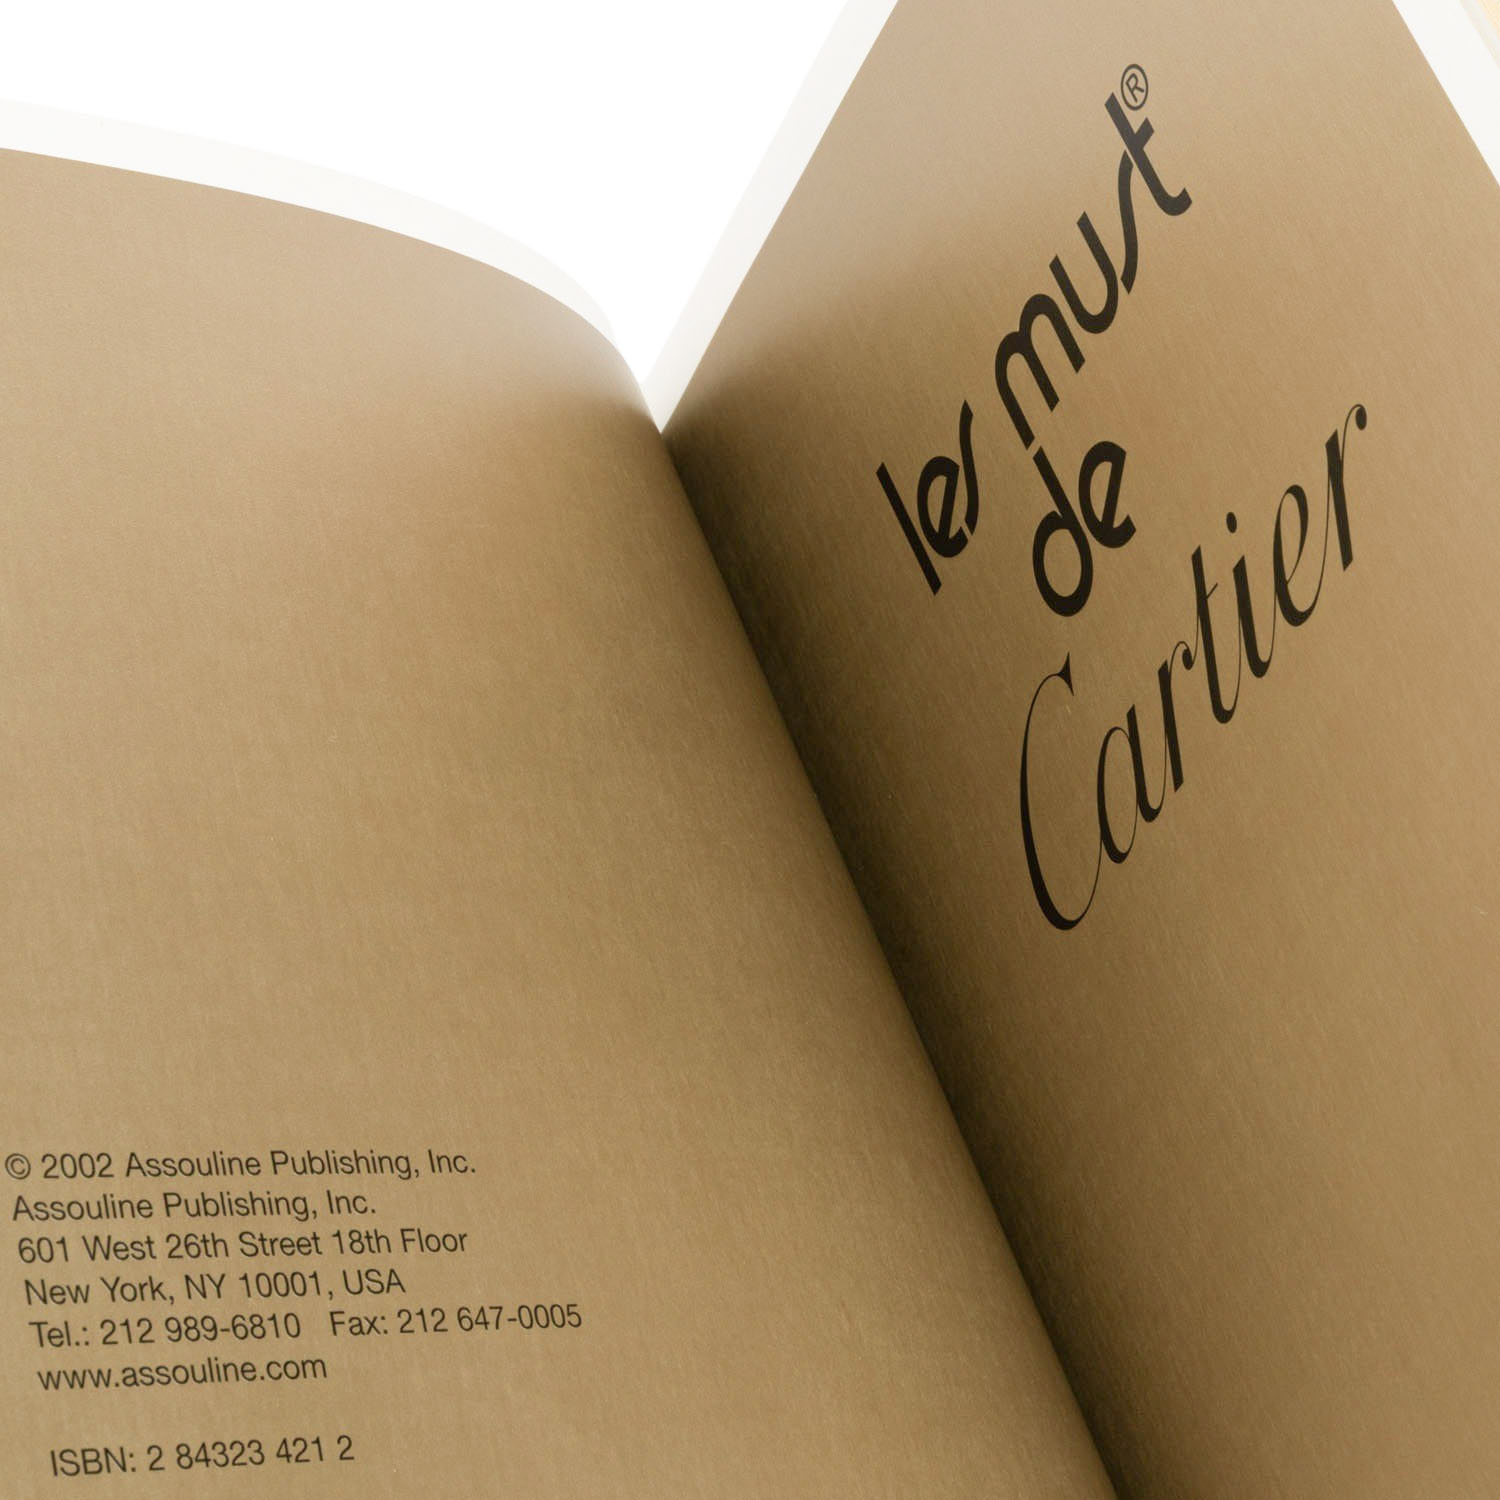 © 2002 Assouline Publishing, Inc.
Assouline Publishing, Inc.
601 West 26th Street 18th Floor
New York, NY 10001, USA
Tel.: 212 989-6810 Fax: 212 647-0005
www.assouline.com
ISBN: 2 84323 421 2
les must®
de
Cartier